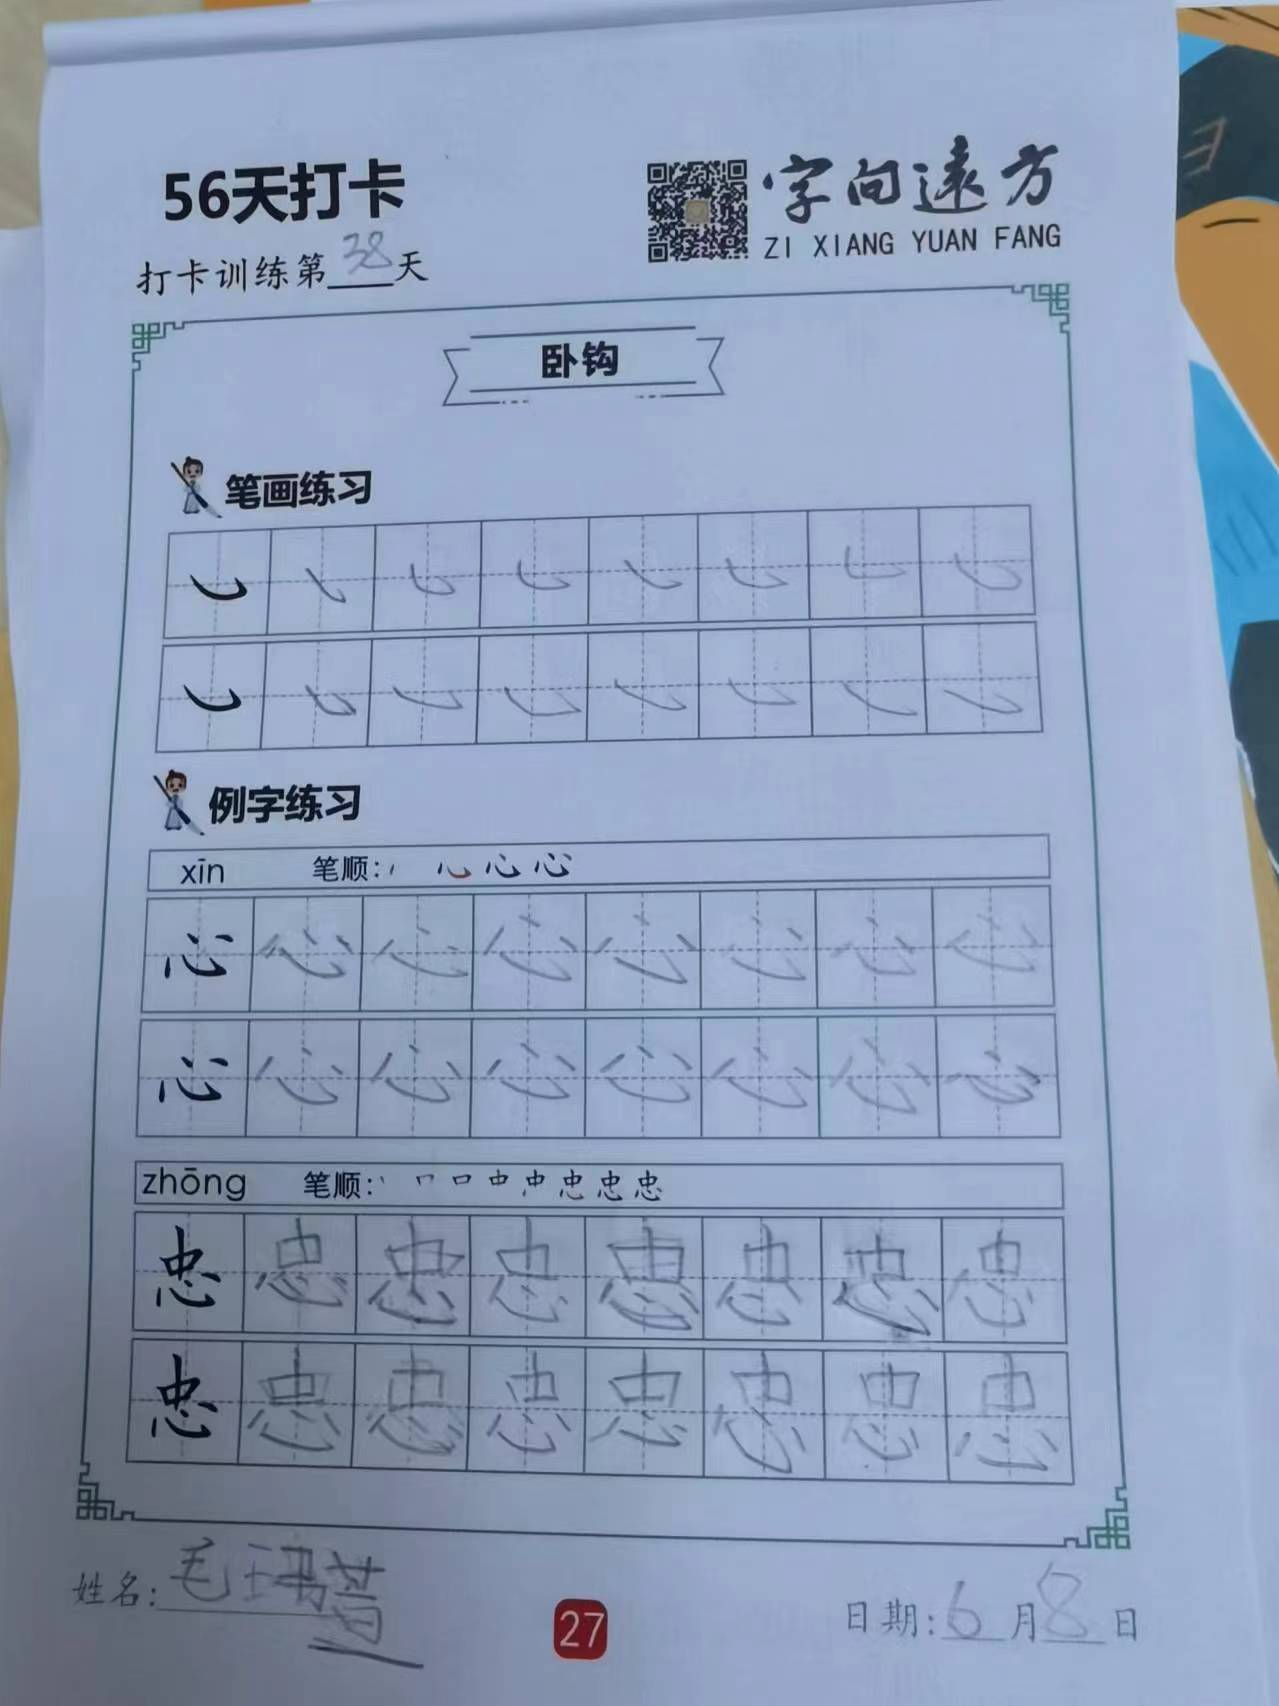 56天打卡
字向远方
ZI XIANG YUAN FANG
打卡训练第38天
卧钩
笔画练习
例字练习
xīn 笔顺: 心
心 心 心 心 心 心 心 心
心 心 心 心 心 心 心 心
zhōng 笔顺: 丨 口 口 中 忠 忠 忠 忠
忠 忠 忠 忠 忠 忠 忠 忠
忠 忠 忠 忠 忠 忠 忠 忠
姓名: 毛
27
日期: 6月8日